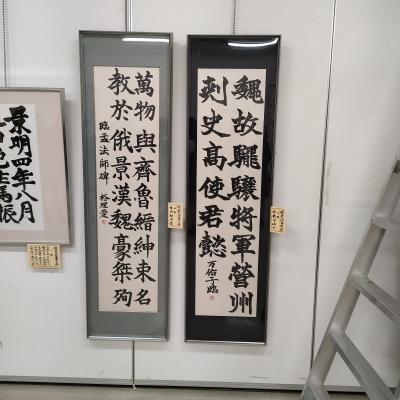 魏故驪驤將軍營州
刾史高使君懿
萬物與齊魯縉紳束名
教於俄景漢魏豪桀殉
臨孟法師碑
景明四年八月
馬振